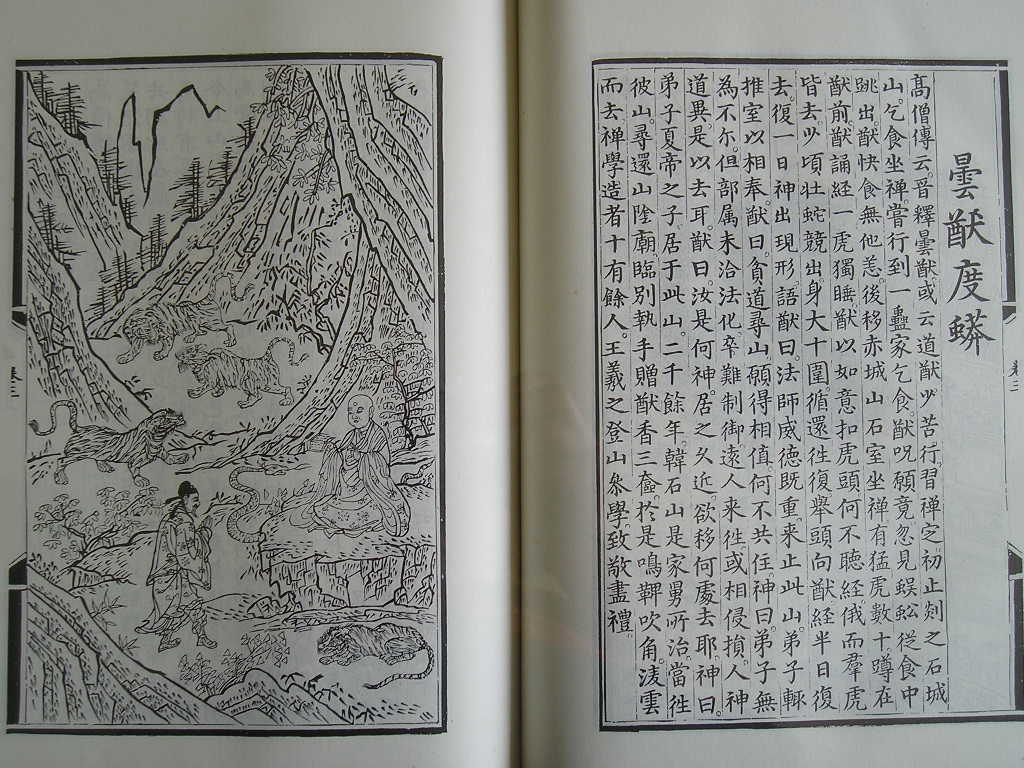 曇猷度蟒
高僧傳云。晉釋曇猷或云道猷少苦行習禪定初止剡之石城
山。乞食坐禪。嘗行到一蠱家乞食。猷呪願竟忽見蜈蚣從食中
跳出。猷快食無他恙。後移赤城山石室坐禪有猛虎數十蹲在
猷前猷誦經一虎獨睡猷以如意扣虎頭何不聽經俄而羣虎
皆去。少頃壯蛇競出身大十圍。循還徃復舉頭向猷經半日復
去。復一日神出現形語猷曰。法師威德既重来止此山。弟子輒
推室以相奉。猷曰。貧道尋山願得相值。何不共住。神曰。弟子無
為不尓。但部属未洽法化。卒難制御。遠人来徃或相侵損。人神
道異。是以去耳。猷曰。汝是何神居之久近。欲移何處去耶。神曰。
弟子夏帝之子。居于此山。二千餘年。韓石山是家舅所治當徃
彼山。尋還山陰廟。臨別執手。贈猷香三奩。扵是鳴鞞吹角。淩雲
而去禅學造者十有餘人。王羲之登山叅學致敬盡禮。
卷三